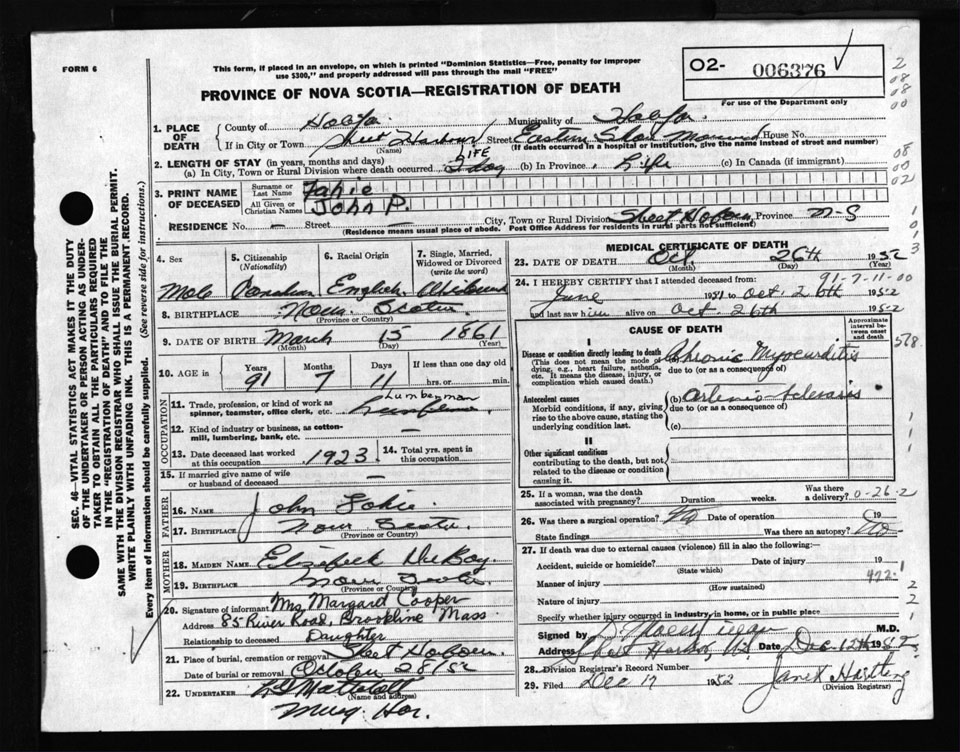 FORM 6
This form, if placed in an envelope, on which is printed "Dominion Statistics—Free, penalty for improper
use $300," and properly addressed will pass through the mail "FREE"
PROVINCE OF NOVA SCOTIA—REGISTRATION OF DEATH
O2- 006376
For use of the Department only
2
08
08
00
1. PLACE OF DEATH
County of Halifax Municipality of Halifax
If in City or Town Sheet Harbour Street Eastern Shore Memorial House No.
(Name) (If death occurred in a hospital or institution, give the name instead of street and number)
2. LENGTH OF STAY (in years, months and days)
LIFE
(a) In City, Town or Rural Division where death occurred 1 day (b) In Province Life (c) In Canada (if immigrant)
08
00
02
3. PRINT NAME OF DECEASED
Surname or Last Name Fahie
All Given or Christian Names John P.
RESIDENCE No. — Street — City, Town or Rural Division Sheet Harbour Province N-S
(Residence means usual place of abode. Post Office Address for residents in rural parts not sufficient)
1
0
1
3
4. Sex
Male
5. Citizenship
(Nationality)
Canadian
6. Racial Origin
English
7. Single, Married,
Widowed or Divorced
(write the word)
8. BIRTHPLACE Nova Scotia
(Province or Country)
9. DATE OF BIRTH March 15 1861
(Month) (Day) (Year)
10. AGE in
Years Months Days If less than one day old
91 7 11 hrs. or min.
OCCUPATION
11. Trade, profession, or kind of work as
spinner, teamster, office clerk, etc. Lumberman
12. Kind of industry or business, as cotton-
mill, lumbering, bank, etc. —
13. Date deceased last worked
at this occupation 1923
14. Total yrs. spent in
this occupation
15. If married give name of wife
or husband of deceased —
FATHER
16. Name John Fahie
17. Birthplace Nova Scotia
(Province or Country)
MOTHER
18. MAIDEN NAME Elizabeth
19. BIRTHPLACE Nova Scotia
(Province or Country)
20. Signature of informant Mrs. Margaret Cooper
Address 85 River Road, Brookline Mass
Relationship to deceased Daughter
21. Place of burial, cremation or removal Sheet Harbour
Date of burial or removal October 28/52
22. UNDERTAKER
(Name and address)
Musq. Har.
MEDICAL CERTIFICATE OF DEATH
23. DATE OF DEATH Oct. 26th 1952
(Month) (Day) (Year)
91-7-11-00
24. I HEREBY CERTIFY that I attended deceased from:
June 1951 to Oct. 26th 1952
and last saw him alive on Oct. 26th 1952
CAUSE OF DEATH
Approximate
interval be-
tween onset
and death
I
Disease or condition directly leading to death
(This does not mean the mode of
dying, e.g., heart failure, asthenia,
etc. It means the disease, injury, or
complication which caused death.)
(a) Chronic Myocarditis
due to (or as a consequence of)
578.
Antecedent causes
Morbid conditions, if any, giving
rise to the above cause, stating the
underlying condition last.
(b) Arterio-sclerosis
due to (or as a consequence of)
(c)
II
Other significant conditions
contributing to the death, but not
related to the disease or condition
causing it.
25. If a woman, was the death
associated with pregnancy? Duration weeks. Was there
a delivery?
0-26-2
26. Was there surgical operation? No Date of operation 19
State findings Was there an autopsy? No
27. If death was due to external causes (violence) fill in also the following:—
Accident, suicide or homicide? Date of injury 19
(State which)
422-1
Manner of injury
(How sustained)
Nature of injury
Specify whether injury occurred in industry, in home, or in public place
Signed by M.D.
Address Sheet Harbor, N.S. Date Dec. 12th 1952
28. Division Registrar's Record Number
29. Filed Dec 17 1952 Janet Hartling
(Division Registrar)
SEC. 46—VITAL STATISTICS ACT MAKES IT THE DUTY
OF THE UNDERTAKER OR PERSON ACTING AS UNDER-
TAKER TO OBTAIN ALL THE PARTICULARS REQUIRED
IN THE "REGISTRATION OF DEATH" AND TO FILE THE
SAME WITH THE DIVISION REGISTRAR WHO SHALL ISSUE THE BURIAL PERMIT.
WRITE PLAINLY WITH UNFADING INK. THIS IS A PERMANENT RECORD.
Every item of information should be carefully supplied. (See reverse side for instructions.)